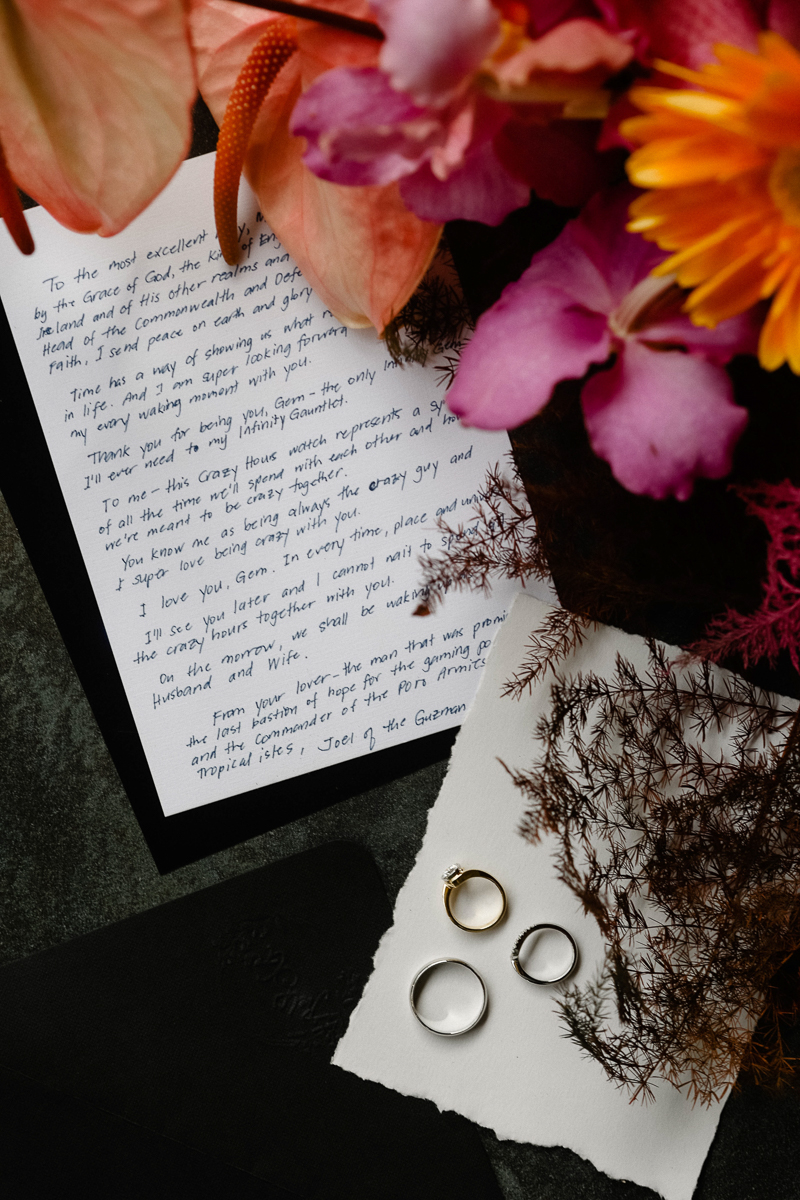 To the most excellent
by the Grace of God, the King of Eng
Ireland and of His other realms and
Head of the Commonwealth and Defe
Faith, I send peace on earth and glory
Time has a way of showing us what
in life. And I am super looking forward
my every waking moment with you.
Thank you for being you, Gem - the only In
I'll ever need to my Infinity Gauntlet.
To me - this Crazy Hours watch represents a sy
of all the time we'll spend with each other and how
we're meant to be crazy together.
You know me as being always the crazy guy and
I super love being crazy with you.
I love you, Gem. In every time, place and uni
I'll see you later and I cannot nait to spend
the crazy hours together with you.
On the morrow, we shall be waking
Husband and Wife.
From your lover - the man that was promi
the last bastion of hope for the gaming po
and the Commander of the Poro Armies
Tropical isles, Joel of the Guzman